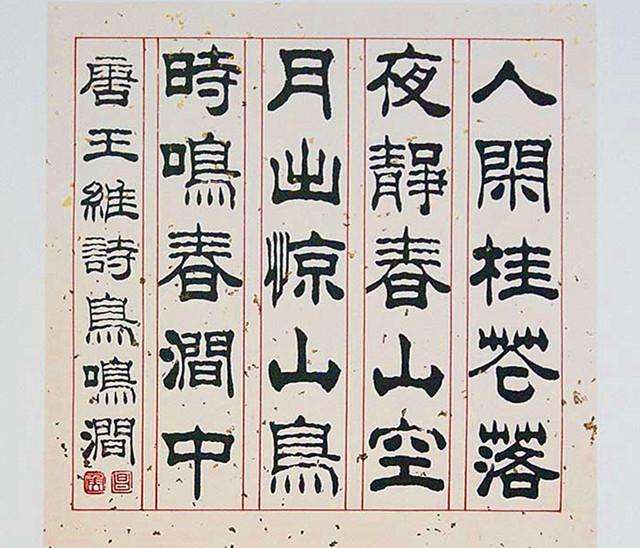 人閑桂花落
夜靜春山空
月出惊山鳥
時鳴春澗中
唐王維詩鳥鳴澗